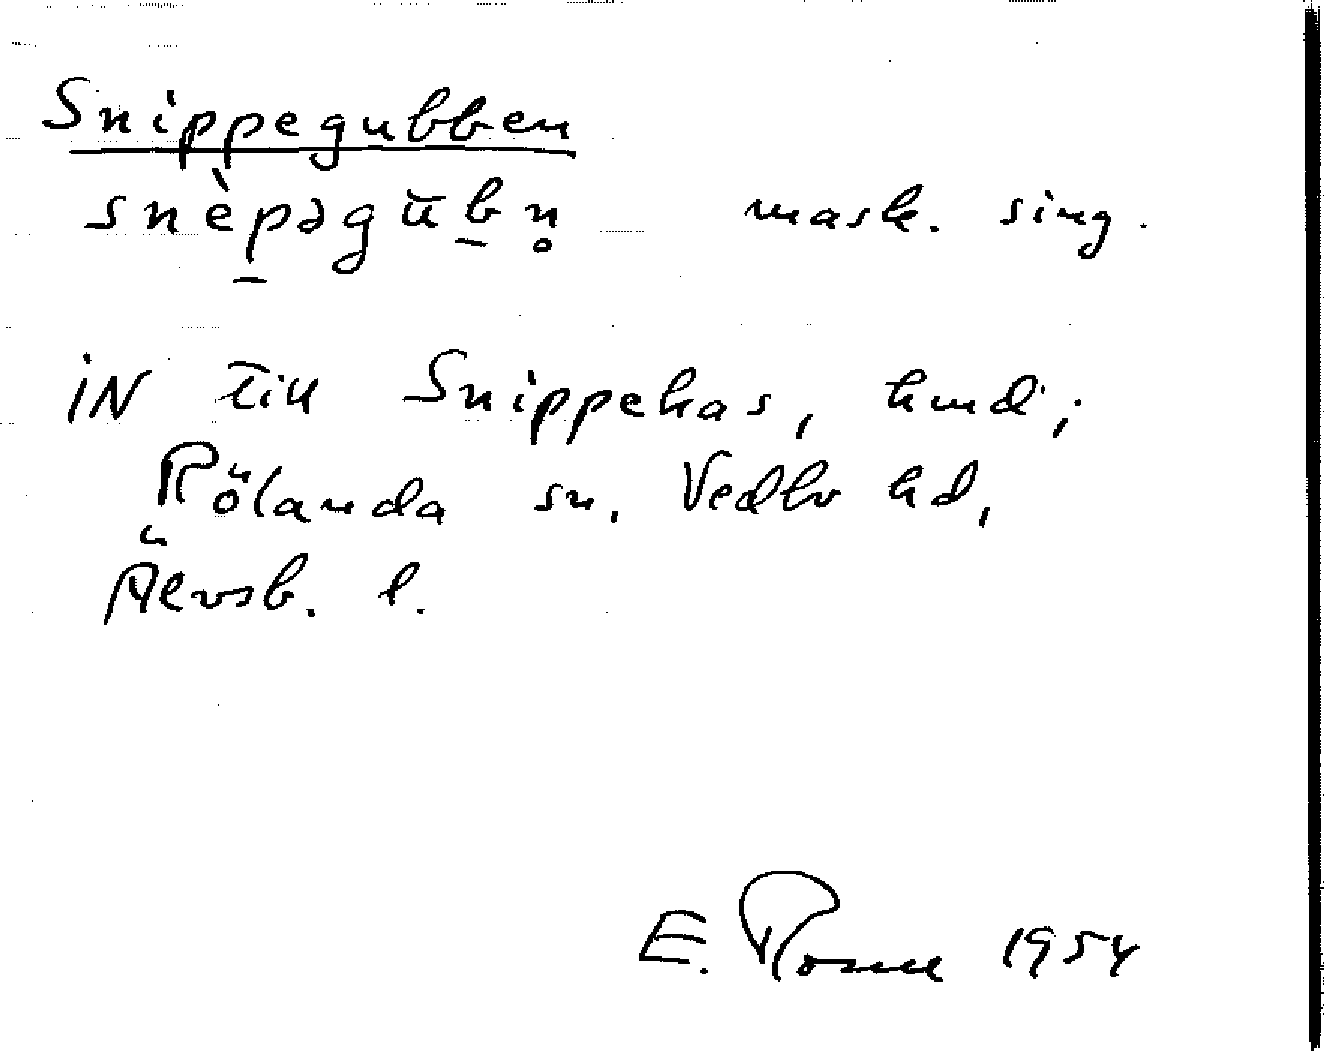 Snippegubben
snèp̱əgūḇn̥ mask. sing.
iN till Snippekas, hmd;
Rölanda sn. Vedbo hd,
Älvsb. l.
E. Rosell 1954